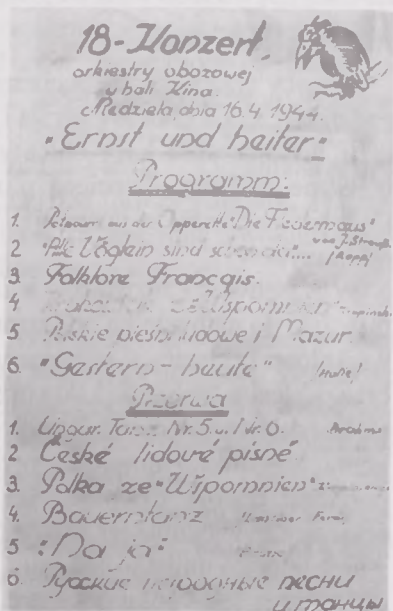 18-Konzert
orkiestry obozowej
w hali Kina.
Niedziela, dnia 16.4.1944.
"Ernst und heiter"
Programm:
1. aus der Opperette "Die Fledermaus"
von J. Strauß.
2 "Alle Vöglein sind schon da"....
3. Folklore Français.
4
5 Polskie pieśni ludowe i Mazur.
6. "Gestern - heute"
Przerwa
1. Ungar. Tanz Nr. 5. u. Nr. 6. Brahms
2 České lidové písně
3. Polka ze "Wspomnien"
4. Bauerntanz
5 "Na ja"
6. Русские народные песни
и танцы